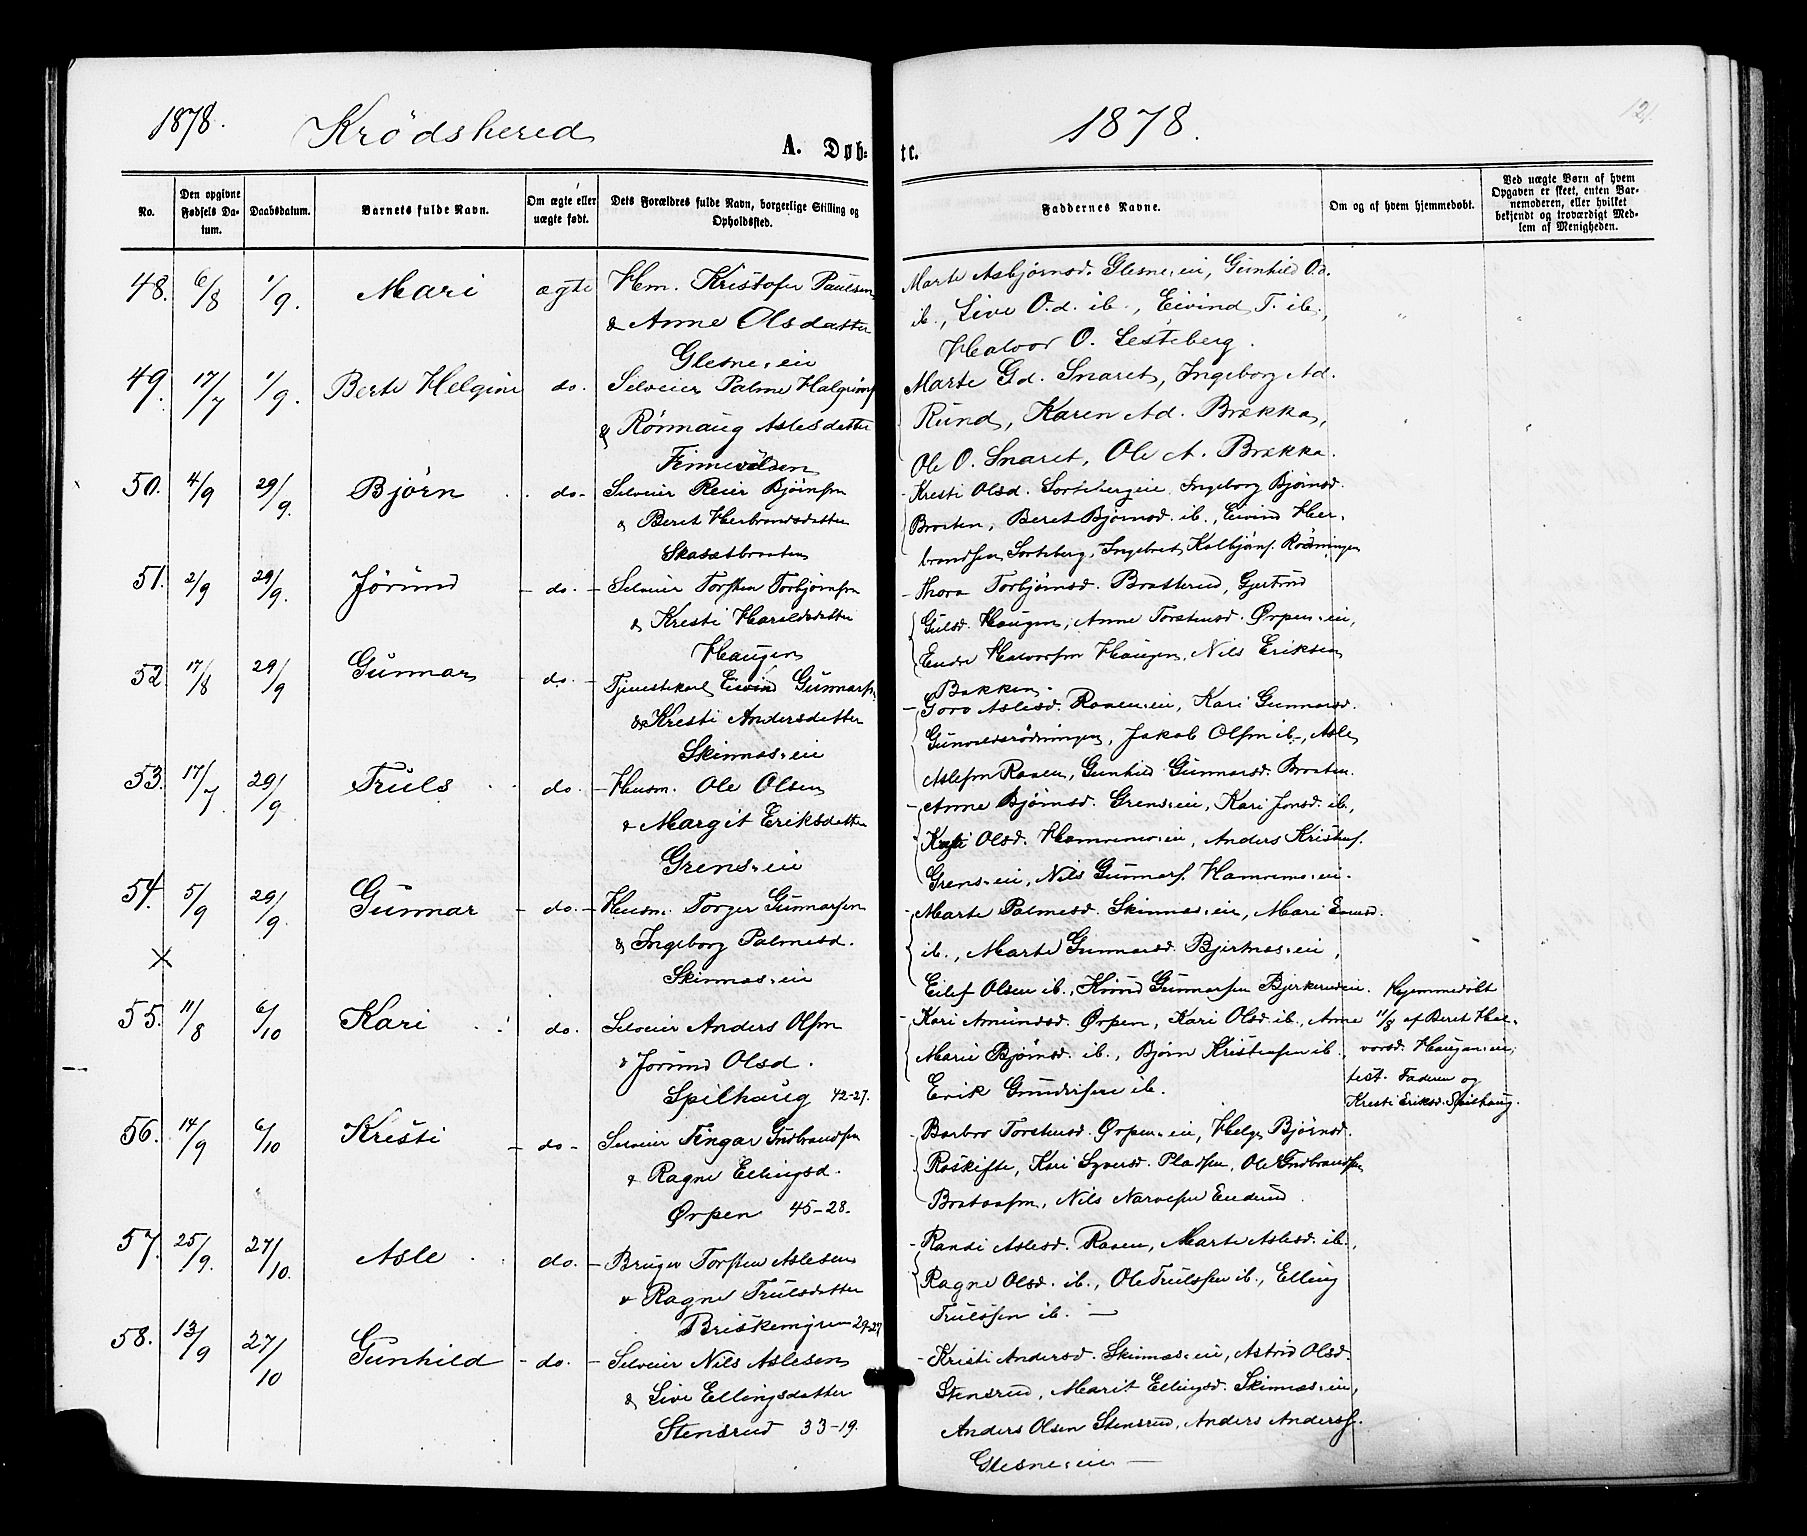 1878.
Krødshered
A. Døb-
te.
1878.
121.
No.
Den opgivne Fødsels Da-
tum.
Daabsdatum.
Barnets fulde Navn.
Om ægte eller
uægte født.
Dets Forældres fulde Navn, borgerlige Stilling og
Opholdssted.
Faddernes Navne.
Om og af hvem hjemmedøbt.
Ved uægte Børn af hvem
Opgaven er skeet, enten Bar-
nemoderen, eller hvilket
bekjendt og troværdigt Med-
lem af Menigheden.
48. 6/8 1/9. Mari ægte Hm. Kristofer Paulsen
& Anne Olsdatter
Glesne-eie
Marte Asbjørnsd. Glesne-eie, Gunhild O.d.
ib., Live O.d. ib., Eivind T. ib.,
Halvor O. Lesteberg.
49. 17/7 1/9. Berte Helgine do. Selveier Palme Halgrims
& Rønnaug Aslesdatter
Finnevolden
Marte Gd. Snaret, Ingeborg Ad.
Rund, Karen Ad. Brekka,
Ole O. Snaret, Ole A. Brekka.
50. 4/9 29/9. Bjørn do- Selveier Reier Bjørnsen
& Beret Herbrandsdatter
Skasetbraaten
Kresti Olsd. Sortebergeie, Ingeborg Bjørnsd.
Braaten, Beret Bjørnsd. ib., Eivind Her-
brandsen Sorteberg, Ingebret Kolbjørns. Rødningen
51. 2/9 29/9. Jørund - do. - Selveier Torsten Torbjørnsen
& Kresti Haraldsdatter
Haugen
Thora Torbjørnsd. Bratterud, Gjertrud
Gulsd. Haugen, Anne Torstensd. Ørpen-eie,
Endre Halvorsen Haugen, Nils Eriksen
Bakken.
52 17/8 29/9 Gunnar do. - Tjenestekarl Eivind Gunnarsn.
& Kresti Andersdatter
Skinnes-eie
Goro Aslesd. Raaen-eie, Kari Gunnarsd.
Gunvaldsrødningen, Jakob Olsen ib., Asle
Aslesen Raaen, Gunhild Gunnarsd. Braaten.
53. 17/7 29/9 Truls do. - Husm. Ole Olsen
& Margit Eriksdatter
Grens-eie
Anne Bjørnsd. Grens-eie, Kari Jonsd. ib.,
Olsd. Hamrems-eie, Anders Kristens.
Grens-eie, Nils Gunnars. Hamrems-eie.
54. 5/9 29/9. Gunnar - do. - Husm. Torger Gunnarsen
& Ingeborg Palmesd.
Skinnes-eie
Marte Palmesd. Skinnes-eie, Mari
ib., Marte Gunnarsd. Bjertnes-eie,
Eilef Olsen ib., Knud Gunnarsen Bjerkerudeie.
X
55. 11/8 6/10 Kari do. Selveier Anders Olsen
& Jørund Olsd.
Spilhaug 42-27.
Kari Amundsd. Ørpen, Kari Olsd. ib., Anne
Marie Bjørnsd. ib., Bjørn Kristensen ib.,
Erik Gundersen ib.
Hjemmedøbt
11/8 af Beret Hal-
vorsd. Haugan-eie;
test. Faderen og
Kresti Eriksd. Spilhaug.
56. 14/9 6/10 Kresti - do- Selveier Fingar Gudbrandsen
& Ragne Ellingsd.
Ørpen 45-28.
Barbro Torstensd. Ørpen-eie, Helge Bjørnsd.
Roskifte, Kari Syversd. Pladsen, Ole Gudbrandsen
Nils Narvesen Enderud.
57. 25/9. 27/10. Asle do. - Bruger Torsten Aslesen
& Ragne Trulsdatter
Briskemyren 29-27
Randi Aslesd. Raaen, Marte Aslesd. ib.,
Ragne Olsd. ib., Ole Trulssen ib., Elling
Trulssen ib. —
58. 13/9 27/10 Gunhild - do. - Selveier Nils Aslesen
& Live Ellingsdatter
Stensrud 33-19.
Kristi Andersd. Skinnes-eie, Astrid Olsd.
Stensrud, Marit Ellingsd. Skinnes-eie,
Anders Olsen Stensrud, Anders Anderss.
Glesne-eie —